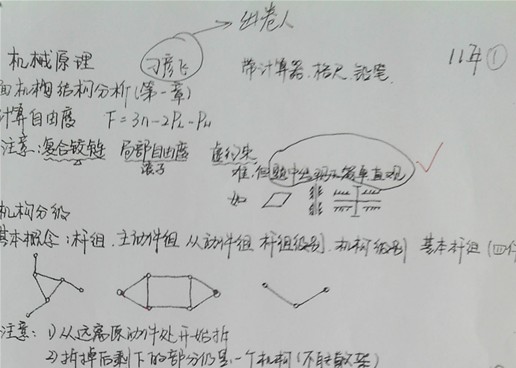 出卷人
机械原理 刁彦飞 带计算器、格尺、铅笔 11年①
面机构结构分析(第一章)
计算自由度 F=3n-2PL-PH
注意:复合铰链 局部自由度 虚约束
滚子 难,但题中出现 简单直观
如
机构分级
基本概念:杆组、主动件组 从动件组 杆组级别、机构级别 基本杆组(四
注意:1)从远离原动件处开始拆
2)拆掉后剩下的部分仍是一个机构(不能散架)